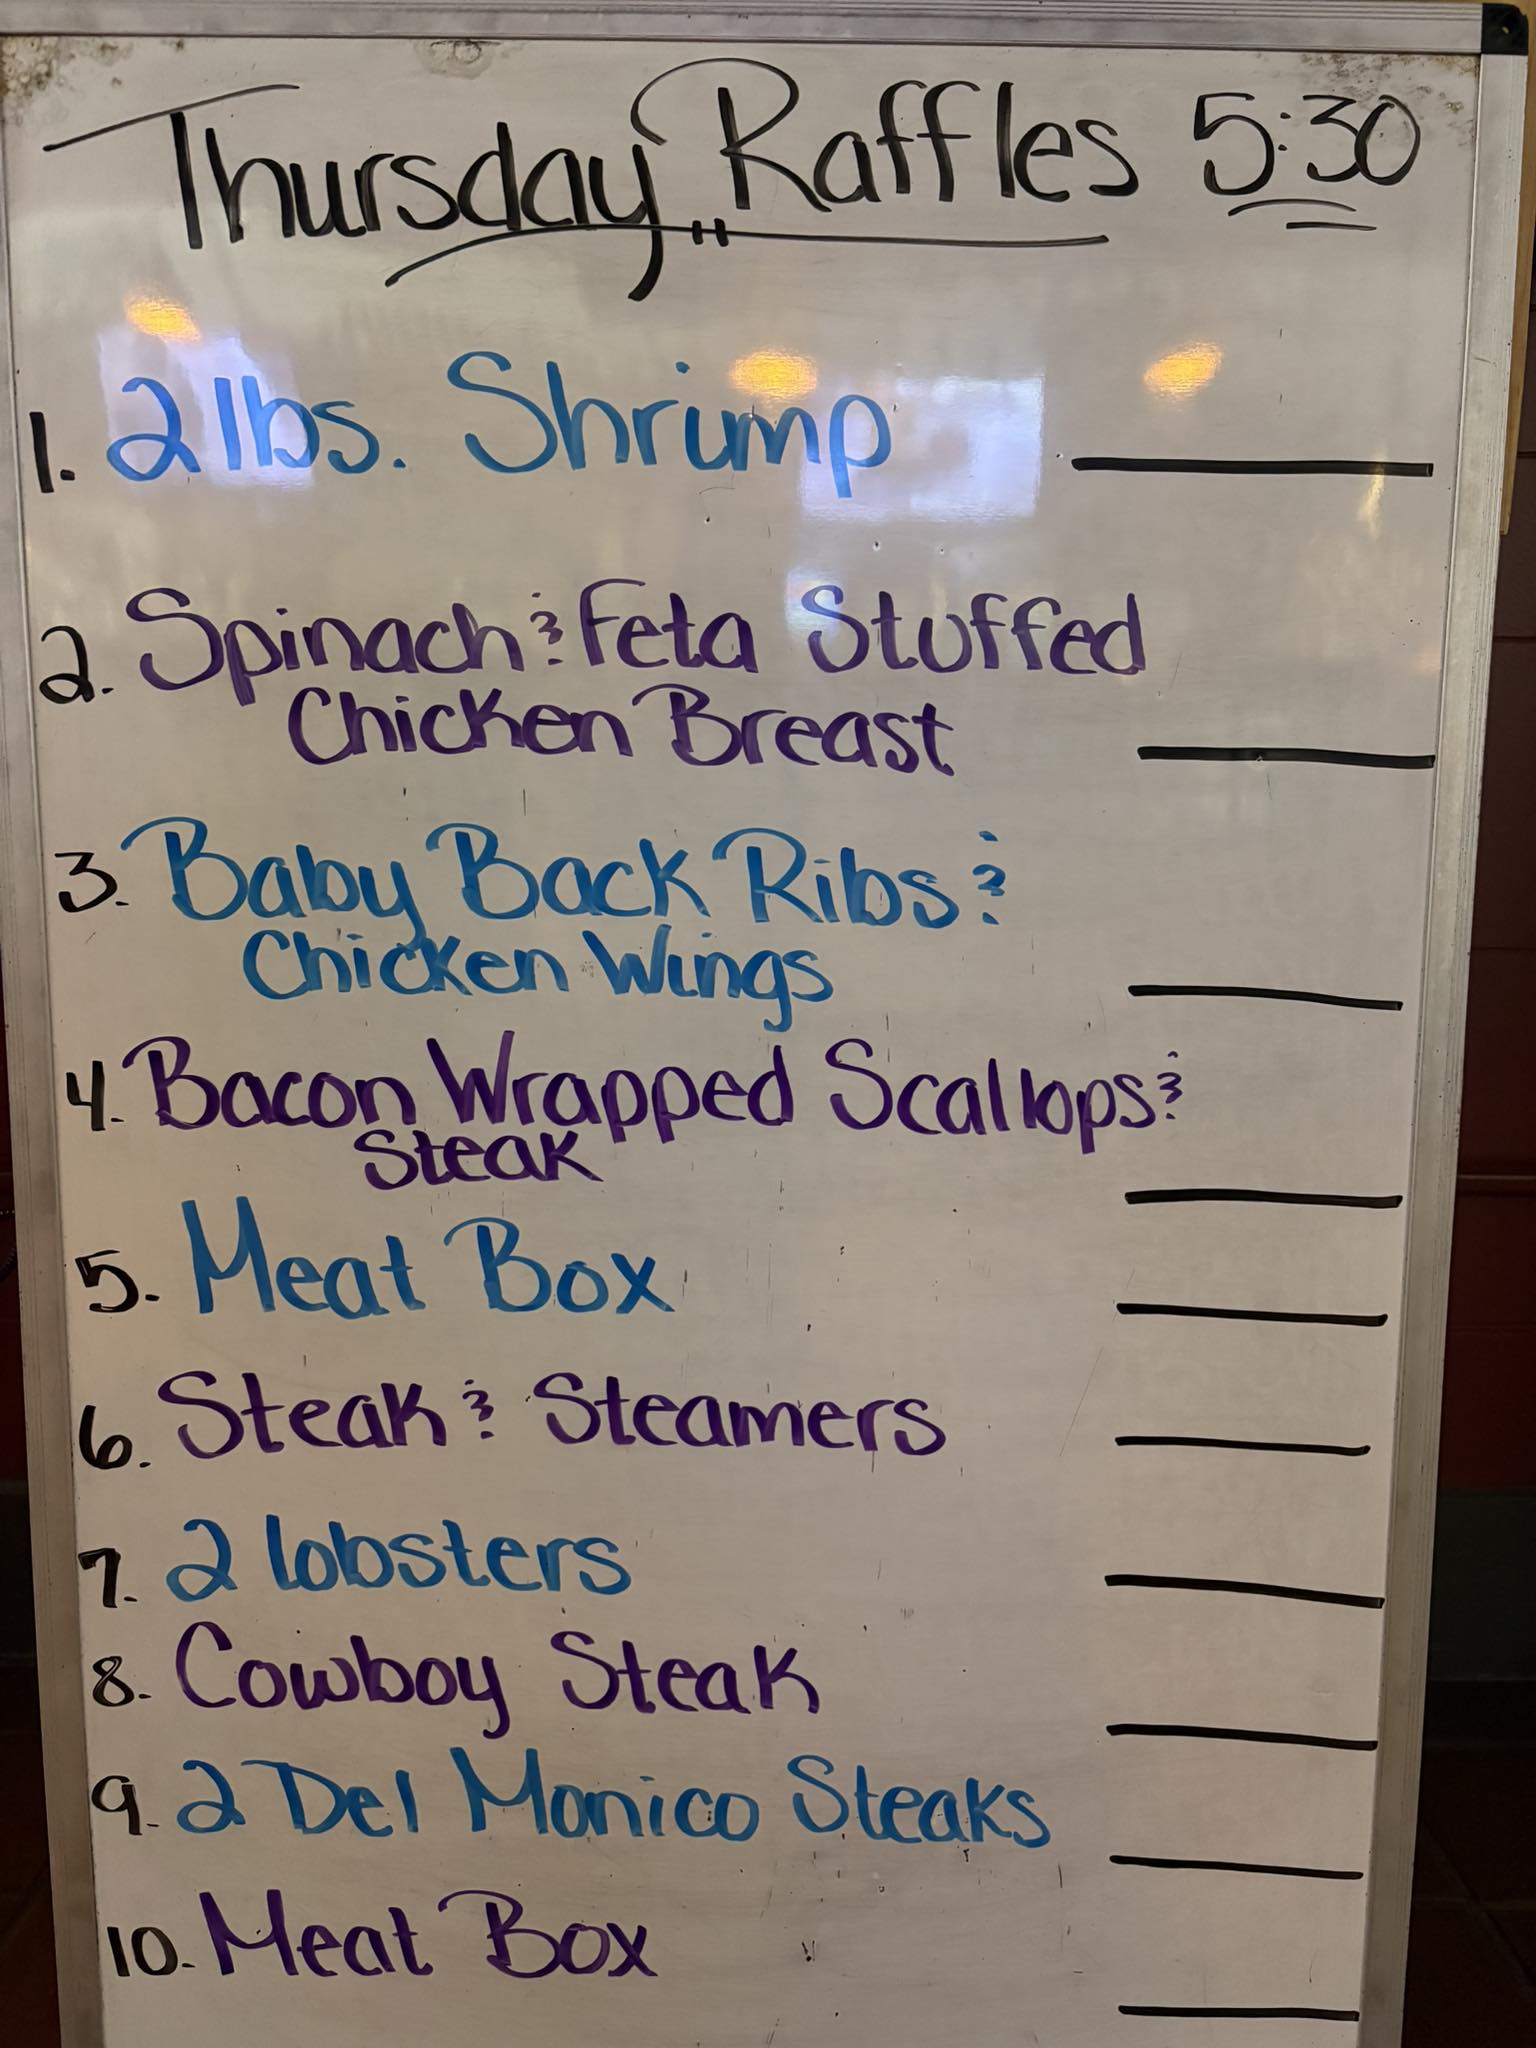 Thursday Raffles 5:30
1. 2 lbs. Shrimp
2. Spinach & Feta Stuffed
Chicken Breast
3. Baby Back Ribs &
Chicken Wings
4. Bacon Wrapped Scallops &
Steak
5. Meat Box
6. Steak & Steamers
7. 2 lobsters
8. Cowboy Steak
9. 2 Del Monico Steaks
10. Meat Box